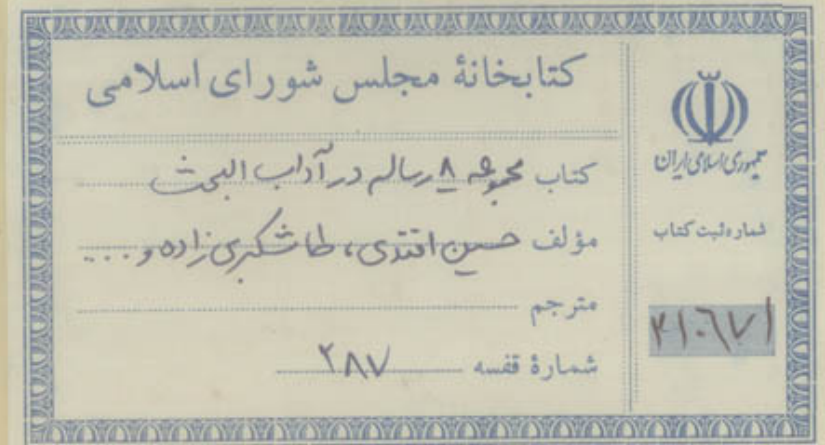 کتابخانهٔ مجلس شورای اسلامی
کتاب مجموعه ۸ رساله در آداب البحث
مؤلف حسین افندی، طاشکبری زاده و ...
مترجم
شمارهٔ قفسه ۲۸۷
جمهوری اسلامی ایران
شماره ثبت کتاب
۲۱۰۶۷۱